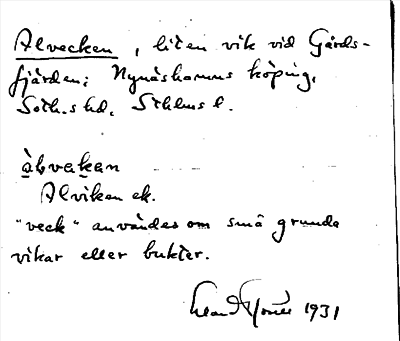 Alvecken, liten vik vid Gårds-
fjärden; Nynäshamns köping,
Soth.s hd. Sthlms l.
àlvekan
Alviken ek.
"veck" användes om små grunda
vikar eller bukter.
1931